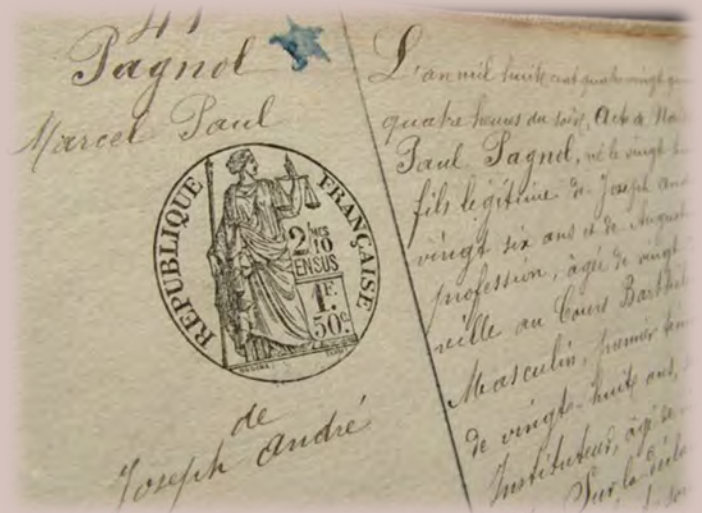 41
Pagnol
Marcel Paul
RÉPUBLIQUE FRANÇAISE
2/MES
10
EN SUS
1F.
50c.
de
Joseph André
L'an mil huit cent quatre vingt
quatre heures du soir, Acte de
Paul Pagnol, né le vingt
fils légitime de Joseph
vingt six ans et de
profession, âgée de vingt
ville au Cours
Masculin, premier
de vingt-huit ans,
Instituteur, âgé de
Sur la